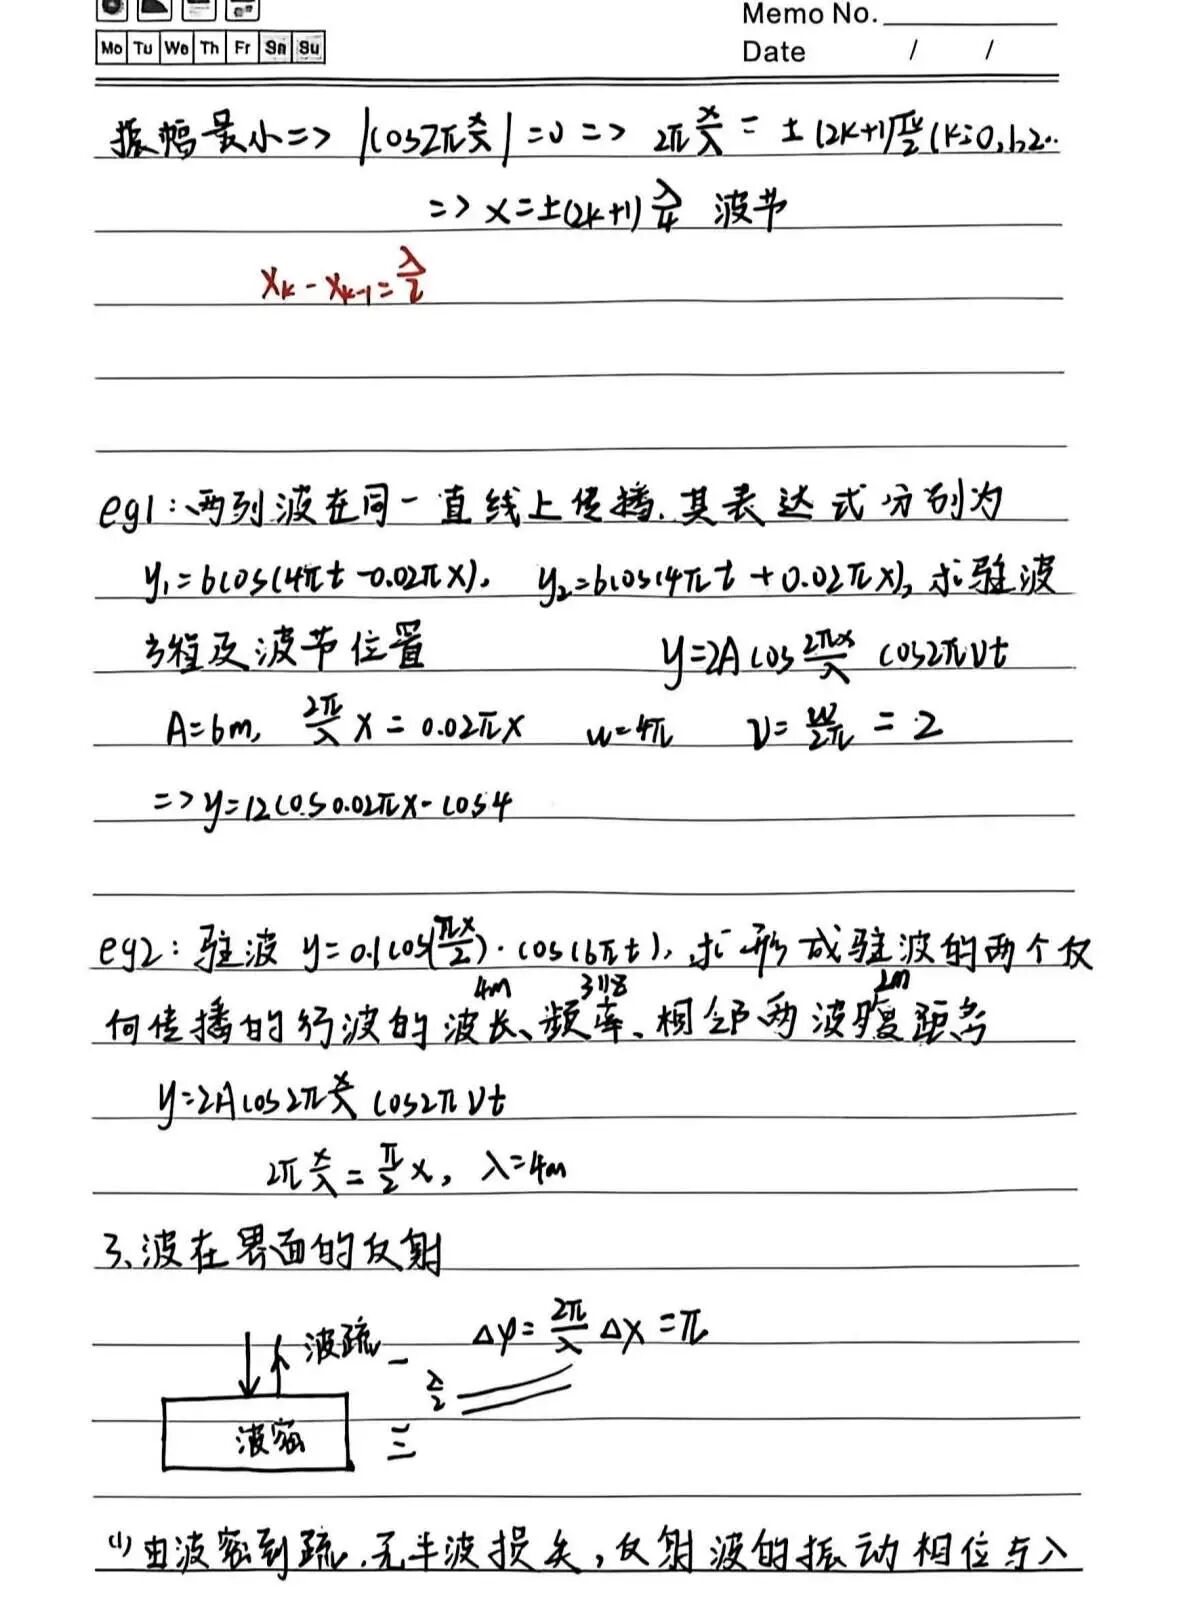 Memo No.
Mo Tu We Th Fr Sa Su
Date / /
振幅最小=> |cos2π x/λ| =0 => 2π x/λ = ±(2k+1)π/2 (k=0,1,2..
=> x=±(2k+1) λ/4 波节
xk - xk-1 = λ/2
eg1:两列波在同一直线上传播.其表达式分别为
y1=6cos(4πt-0.02πx), y2=6cos(4πt+0.02πx), 求驻波
方程及波节位置 y=2A cos 2πx/λ cos2πνt
A=6m, 2π/λ x = 0.02πx w=4π ν= w/2π = 2
=> y=12cos0.02πx-cos4
eg2:驻波 y=0.1cos(πx/2)·cos(6πt), 求形成驻波的两个仅
4m 3Hz 2m
何传播的行波的波长、频率、相邻两波腹距离
y=2Acos2π x/λ cos2πνt
2π x/λ = π/2 x, λ=4m
3、波在界面的反射
波疏 Δφ= 2π/λ Δx =π
λ/2
波密
(1)由波密到疏.无半波损失,反射波的振动相位与入